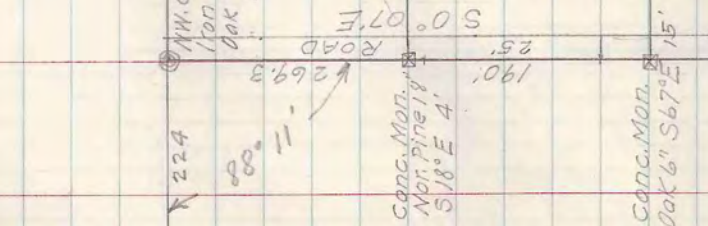 NW.
Iron
Oak
S 0° 07' E
ROAD
25'
269.3
190'
224
88° 11'
Conc. Mon.
Nor. Pine 18"
S 18° E 4'
Conc. Mon.
Oak 6" S67°E 15'